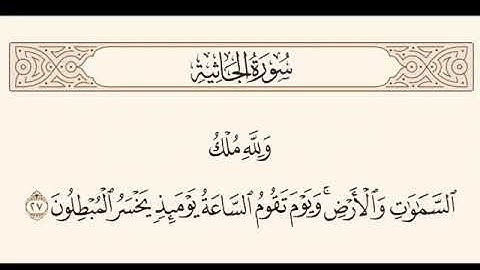 سُورَةُ الجَاثِيَةِ
وَلِلَّهِ مُلْكُ
السَّمَٰوَٰتِ وَالْأَرْضِ ۚ وَيَوْمَ تَقُومُ السَّاعَةُ يَوْمَئِذٍ يَخْسَرُ الْمُبْطِلُونَ ٢٧